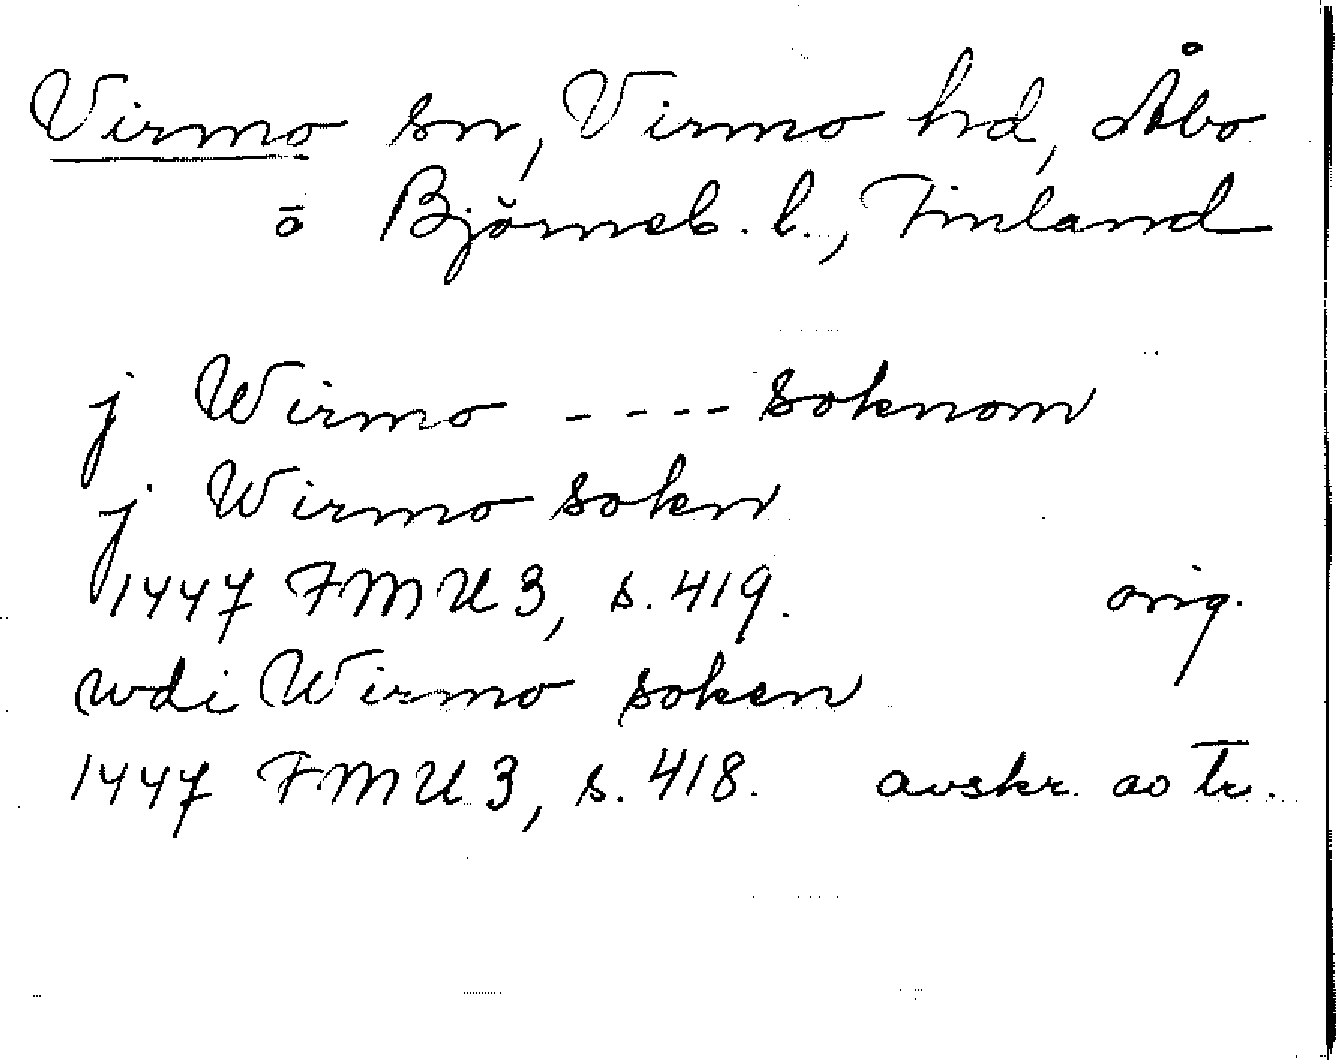 Virmo sn, Virmo hd, Åbo
o Björneb. l., Finland
j Wirmo ---- soknom
j Wirmo sokn
1447 FMU 3, s. 419. orig.
wdi Wirmo soken
1447 FMU 3, s. 418. avskr. ao Tr.